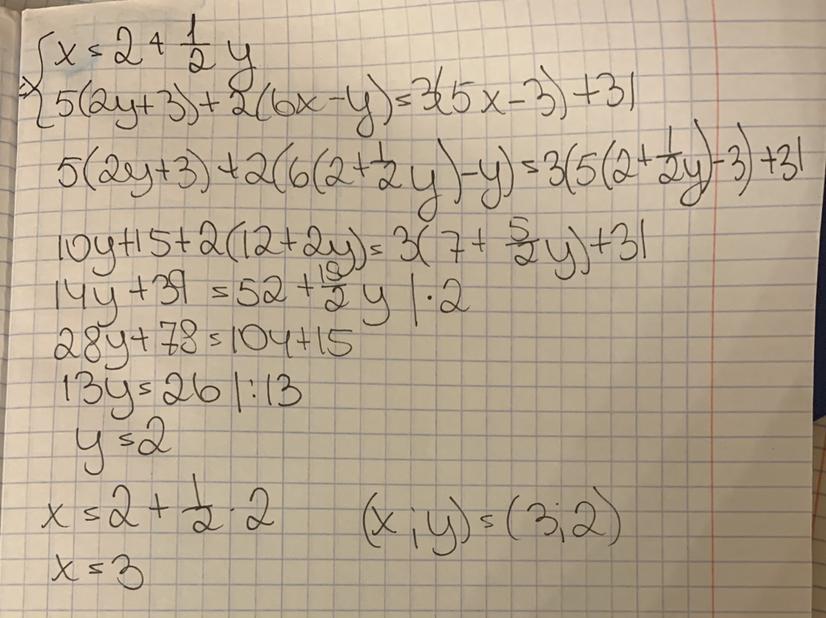 ⇒ { x = 2 + 1/2 y
5(2y+3) + 2(6x-y) = 3(5x-3) + 31
5(2y+3) + 2(6(2+1/2y)-y) = 3(5(2+1/2y)-3) + 31
10y+15+2(12+2y) = 3(7+5/2y)+31
14y + 39 = 52 + 15/2 y |·2
28y + 78 = 104 + 15
13y = 26 |:13
y = 2
x = 2 + 1/2 · 2 (x;y) = (3;2)
x = 3